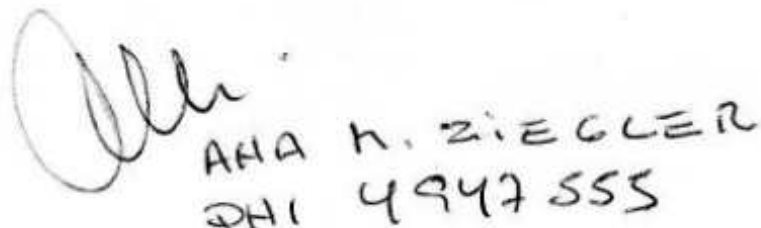 ANA M. ZIEGLER
DNI 4947555